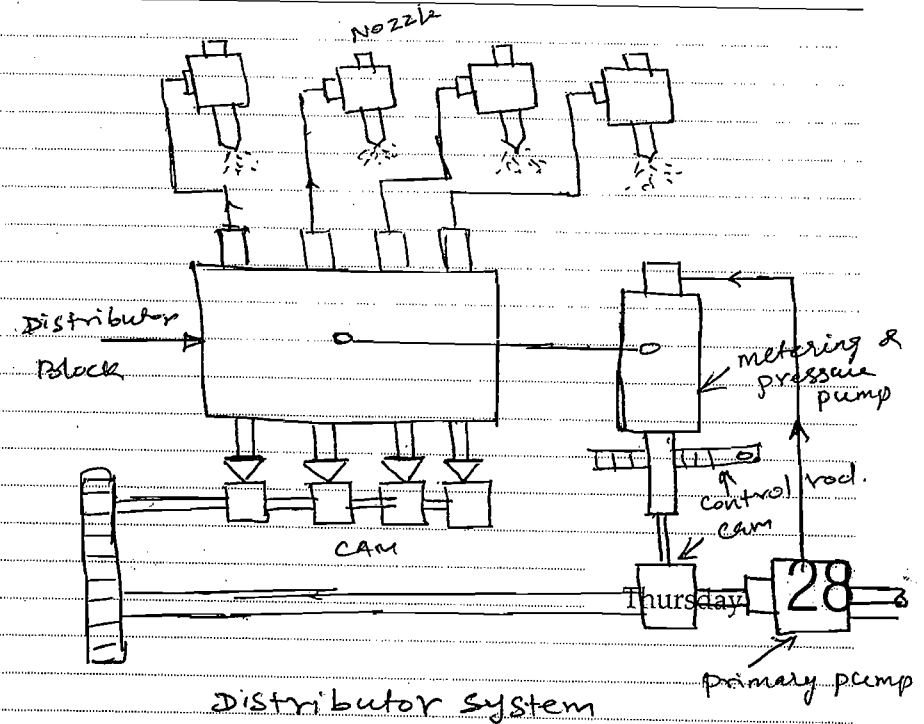 Nozzle
Distributor
Block
metering &
pressure
pump
control rod.
CAM
cam
Thursday
28
primary pump
Distributor system